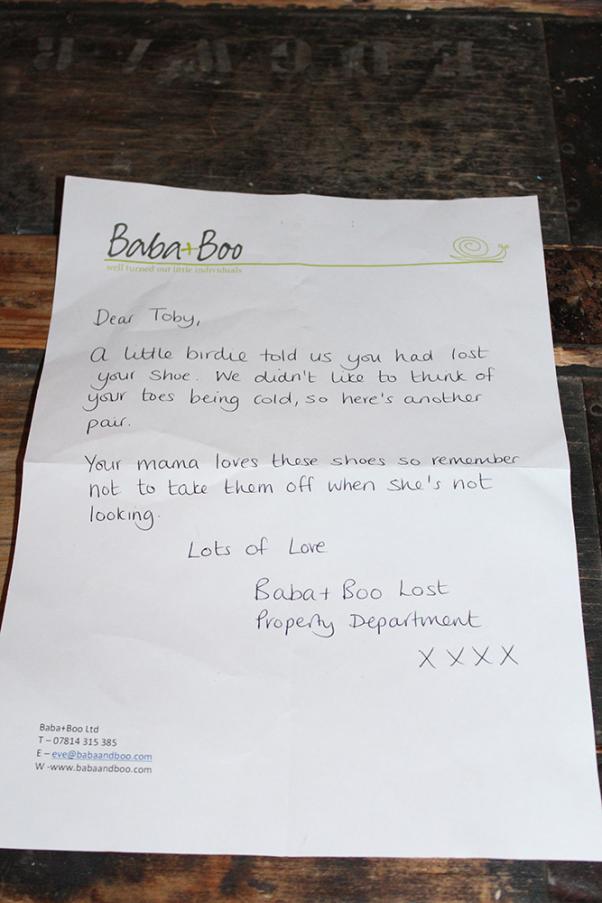 EDGBYR
Baba+Boo
well turned out little individuals
Dear Toby,
A little birdie told us you had lost
your shoe. We didn't like to think of
your toes being cold, so here's another
pair.
Your mama loves these shoes so remember
not to take them off when she's not
looking.
Lots of Love
Baba+Boo Lost
Property Department
XXXX
Baba+Boo Ltd
T – 07814 315 385
E – eve@babaandboo.com
W -www.babaandboo.com